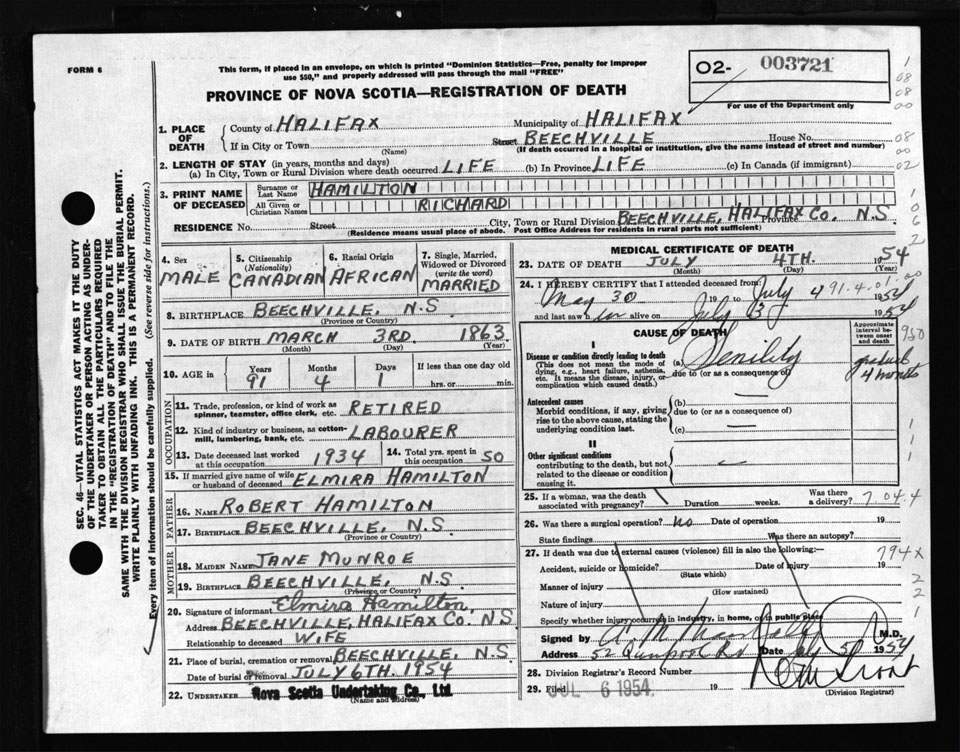 FORM 6
This form, if placed in an envelope, on which is printed "Dominion Statistics—Free, penalty for improper
use $50," and properly addressed will pass through the mail "FREE"
PROVINCE OF NOVA SCOTIA—REGISTRATION OF DEATH
02- 003721
For use of the Department only
1. PLACE OF DEATH
County of HALIFAX Municipality of HALIFAX
If in City or Town (Name) Street BEECHVILLE House No.
(If death occurred in a hospital or institution, give the name instead of street and number)
2. LENGTH OF STAY (in years, months and days)
(a) In City, Town or Rural Division where death occurred LIFE (b) In Province LIFE (c) In Canada (if immigrant)
3. PRINT NAME OF DECEASED
Surname or Last Name HAMILTON
All Given or Christian Names RICHARD
RESIDENCE No. Street City, Town or Rural Division BEECHVILLE, HALIFAX Co. Province N.S.
(Residence means usual place of abode. Post Office Address for residents in rural parts not sufficient)
4. Sex MALE
5. Citizenship (Nationality) CANADIAN
6. Racial Origin AFRICAN
7. Single, Married, Widowed or Divorced (write the word) MARRIED
8. BIRTHPLACE BEECHVILLE, N.S.
(Province or Country)
9. DATE OF BIRTH MARCH 3RD. 1863
(Month) (Day) (Year)
10. AGE in Years 91 Months 4 Days 1 If less than one day old hrs. or min.
OCCUPATION
11. Trade, profession, or kind of work as spinner, teamster, office clerk, etc. RETIRED
12. Kind of industry or business, as cotton-mill, lumbering, bank, etc. LABOURER
13. Date deceased last worked at this occupation 1934
14. Total yrs. spent in this occupation 50
15. If married give name of wife or husband of deceased ELMIRA HAMILTON
FATHER
16. Name ROBERT HAMILTON
17. Birthplace BEECHVILLE, N.S.
(Province or Country)
MOTHER
18. MAIDEN NAME JANE MUNROE
19. Birthplace BEECHVILLE, N.S.
(Province or Country)
20. Signature of informant Elmira Hamilton,
Address BEECHVILLE, HALIFAX Co. N.S.
Relationship to deceased WIFE
21. Place of burial, cremation or removal BEECHVILLE, N.S.
Date of burial or removal JULY 6TH. 1954
22. UNDERTAKER Nova Scotia Undertaking Co., Ltd.
(Name and Address)
MEDICAL CERTIFICATE OF DEATH
23. DATE OF DEATH JULY 4TH. 1954
(Month) (Day) (Year)
24. I HEREBY CERTIFY that I attended deceased from
May 30 19 to July 4 1954
91.4.01
and last saw h im alive on July 3 1954
CAUSE OF DEATH
Approximate interval between onset and death
I
Disease or condition directly leading to death
(This does not mean the mode of dying, e.g., heart failure, asthenia, etc. It means the disease, injury, or complication which caused death.)
(a) Senility
due to (or as a consequence of)
4 months
Antecedent causes
Morbid conditions, if any, giving rise to the above cause, stating the underlying condition last.
(b) —
due to (or as a consequence of)
(c) —
II
Other significant conditions
contributing to the death, but not related to the disease or condition causing it.
25. If a woman, was the death associated with pregnancy? Duration weeks. Was there a delivery?
7.04.4
26. Was there a surgical operation? no Date of operation 19
State findings Was there an autopsy?
27. If death was due to external causes (violence) fill in also the following:—
794x
Accident, suicide or homicide? Date of injury 19
(State which)
Manner of injury
(How sustained)
Nature of injury
Specify whether injury occurred in industry, in home, or in public place
Signed by M.D.
Address 52 Quinpool Rd Date July 5 1954
28. Division Registrar's Record Number
29. Filed JUL 6 1954. 19
(Division Registrar)
SEC. 46—VITAL STATISTICS ACT MAKES IT THE DUTY
OF THE UNDERTAKER OR PERSON ACTING AS UNDER-
TAKER TO OBTAIN ALL THE PARTICULARS REQUIRED
IN THE "REGISTRATION OF DEATH" AND TO FILE THE
SAME WITH THE DIVISION REGISTRAR WHO SHALL ISSUE THE BURIAL PERMIT.
WRITE PLAINLY WITH UNFADING INK. THIS IS A PERMANENT RECORD.
Every item of information should be carefully supplied. (See reverse side for instructions.)